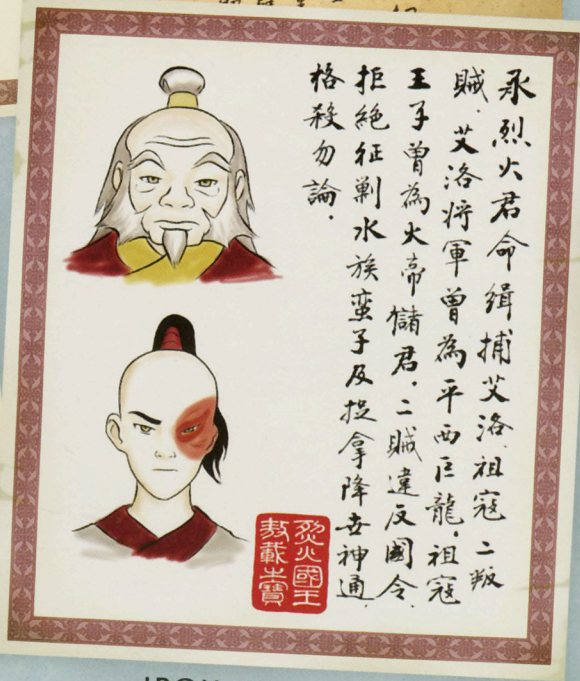 承烈火君命緝捕艾洛．祖寇二叛
賊．艾洛将軍曾為平西巨龍．祖寇
王子曾為火帝儲君．二賊違反國令．
拒絕征剿水族蛮子及捉拿降世神通．
格殺勿論．
烈火國王